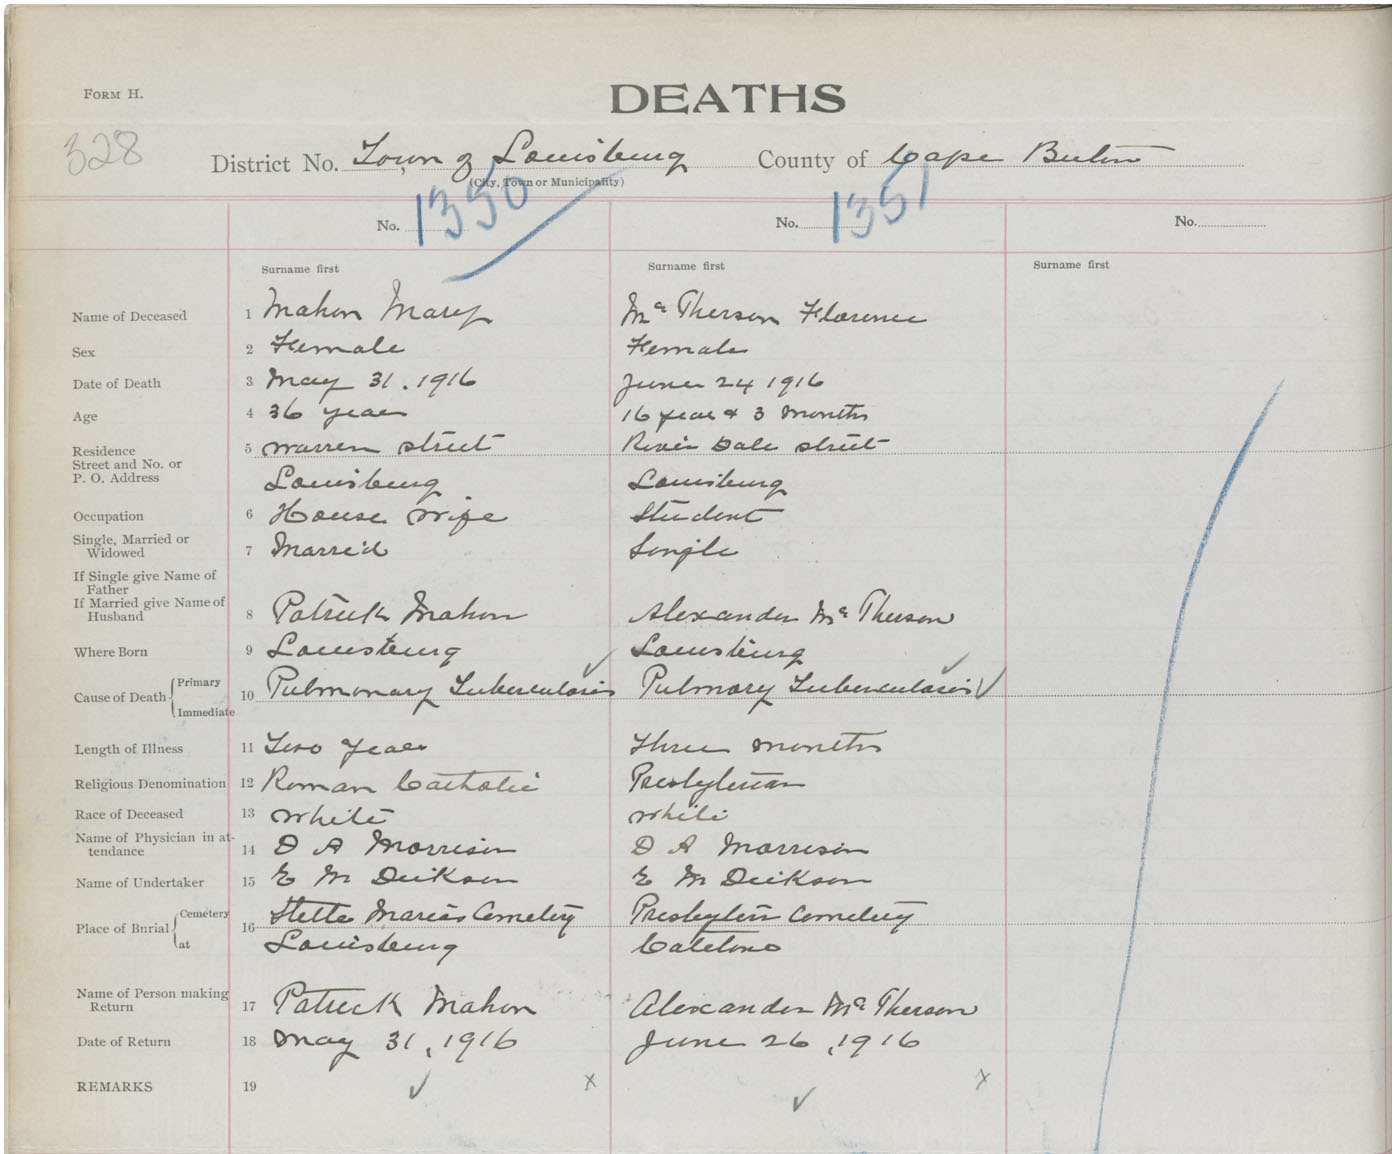 FORM H.
DEATHS
328
District No. Town of Louisburg County of Cape Breton
(City, Town or Municipality)
No. 1350 No. 1351 No.
Surname first Surname first Surname first
Name of Deceased 1 Mahon Mary Mc Pherson Florence
Sex 2 Female Female
Date of Death 3 May 31. 1916 June 24 1916
Age 4 36 years 16 years & 3 Months
Residence 5 Warren street River Dale street
Street and No. or
P. O. Address Louisburg Louisburg
Occupation 6 House wife Student
Single, Married or
Widowed 7 Marreid Single
If Single give Name of
Father
If Married give Name of
Husband 8 Patrick Mahon Alexander Mc Pherson
Where Born 9 Louisburg Louisburg
Cause of Death Primary 10 Pulmonary Tuberculosis Pulmonary Tuberculosis
Immediate
Length of Illness 11 Two years three months
Religious Denomination 12 Roman Catholic Presbyterian
Race of Deceased 13 white white
Name of Physician in at-
tendance 14 D A Morrison D A Morrison
Name of Undertaker 15 E M Dickson E M Dickson
Place of Burial Cemetery 16 Stella Maries Cemetery Presbyterin Cemetery
at Louisburg Catalone
Name of Person making
Return 17 Patrick Mahon Alexander Mc Pherson
Date of Return 18 May 31, 1916 June 26, 1916
REMARKS 19